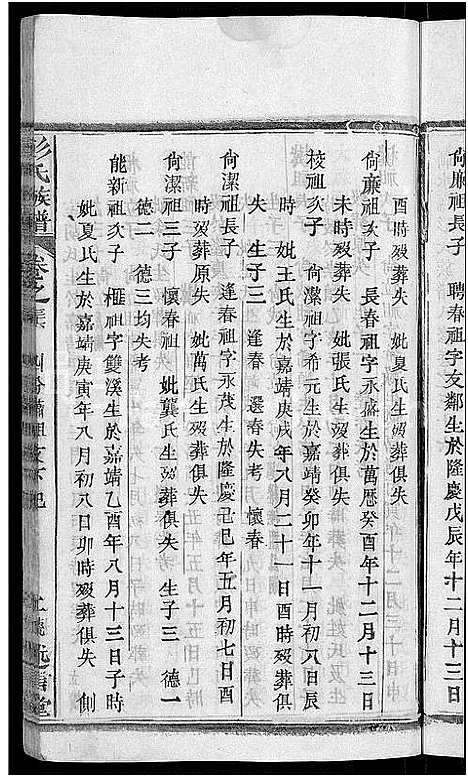 尙廉祖長子　聘春祖字友鄰生於隆慶戊辰年十二月十三日
酉時歿葬失　妣夏氏生歿葬俱失
尙廉祖次子　長春祖字永盛生於萬曆癸酉年十二月十三日
未時歿葬失　妣張氏生歿葬俱失
棱祖次子　尙潔祖字希元生於嘉靖癸卯年十一月初八日辰
時　妣王氏生於嘉靖庚戌年八月二十一日酉時歿葬俱
失　生子三　逢春　選春失考　懷春
尙潔祖長子　逢春祖字永茂生於隆慶己巳年五月初七日酉
時歿葬原失　妣萬氏生歿葬俱失
尙潔祖三子　懷春祖　妣龔氏生歿葬俱失　生子三　德一
德二　德三均失考
能新祖次子　榧祖字雙溪生於嘉靖乙酉年八月十三日子時
妣夏氏生於嘉靖庚寅年八月初八日卯時歿葬俱失　創
彭氏族譜
卷之